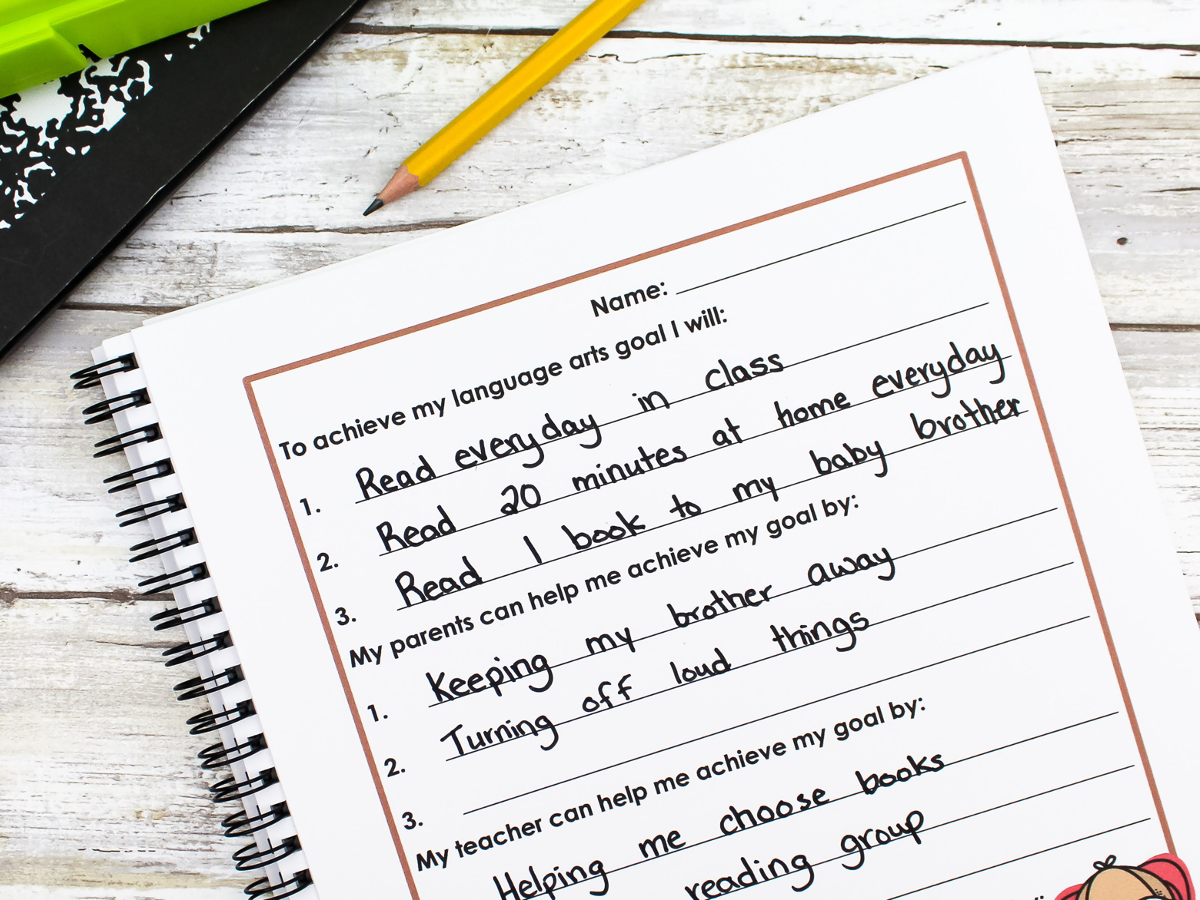 Name:
To achieve my language arts goal I will:
1. Read everyday in class
2. Read 20 minutes at home everyday
3. Read 1 book to my baby brother
My parents can help me achieve my goal by:
1. Keeping my brother away
2. Turning off loud things
3.
My teacher can help me achieve my goal by:
Helping me choose books
reading group